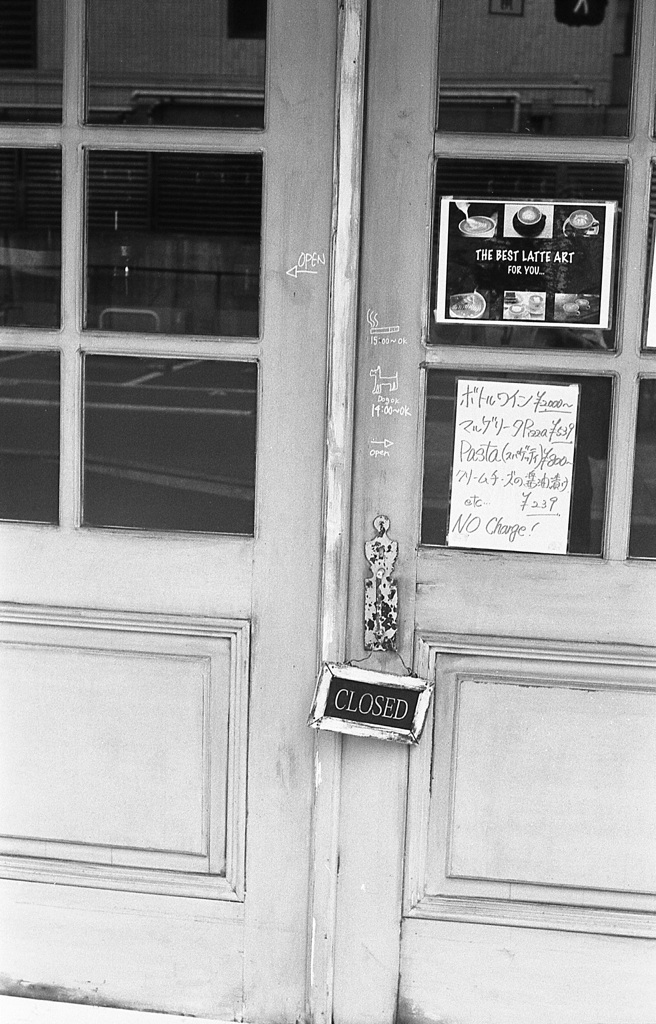 OPEN
15:00~OK
Dog OK
14:00~OK
open
THE BEST LATTE ART
FOR YOU...
ボトルワイン ¥2000~
マルゲリータPizza ¥539
Pasta(スパゲッティ)¥800~
クリームチーズの醤油漬け
etc... ¥239
NO Charge!
CLOSED